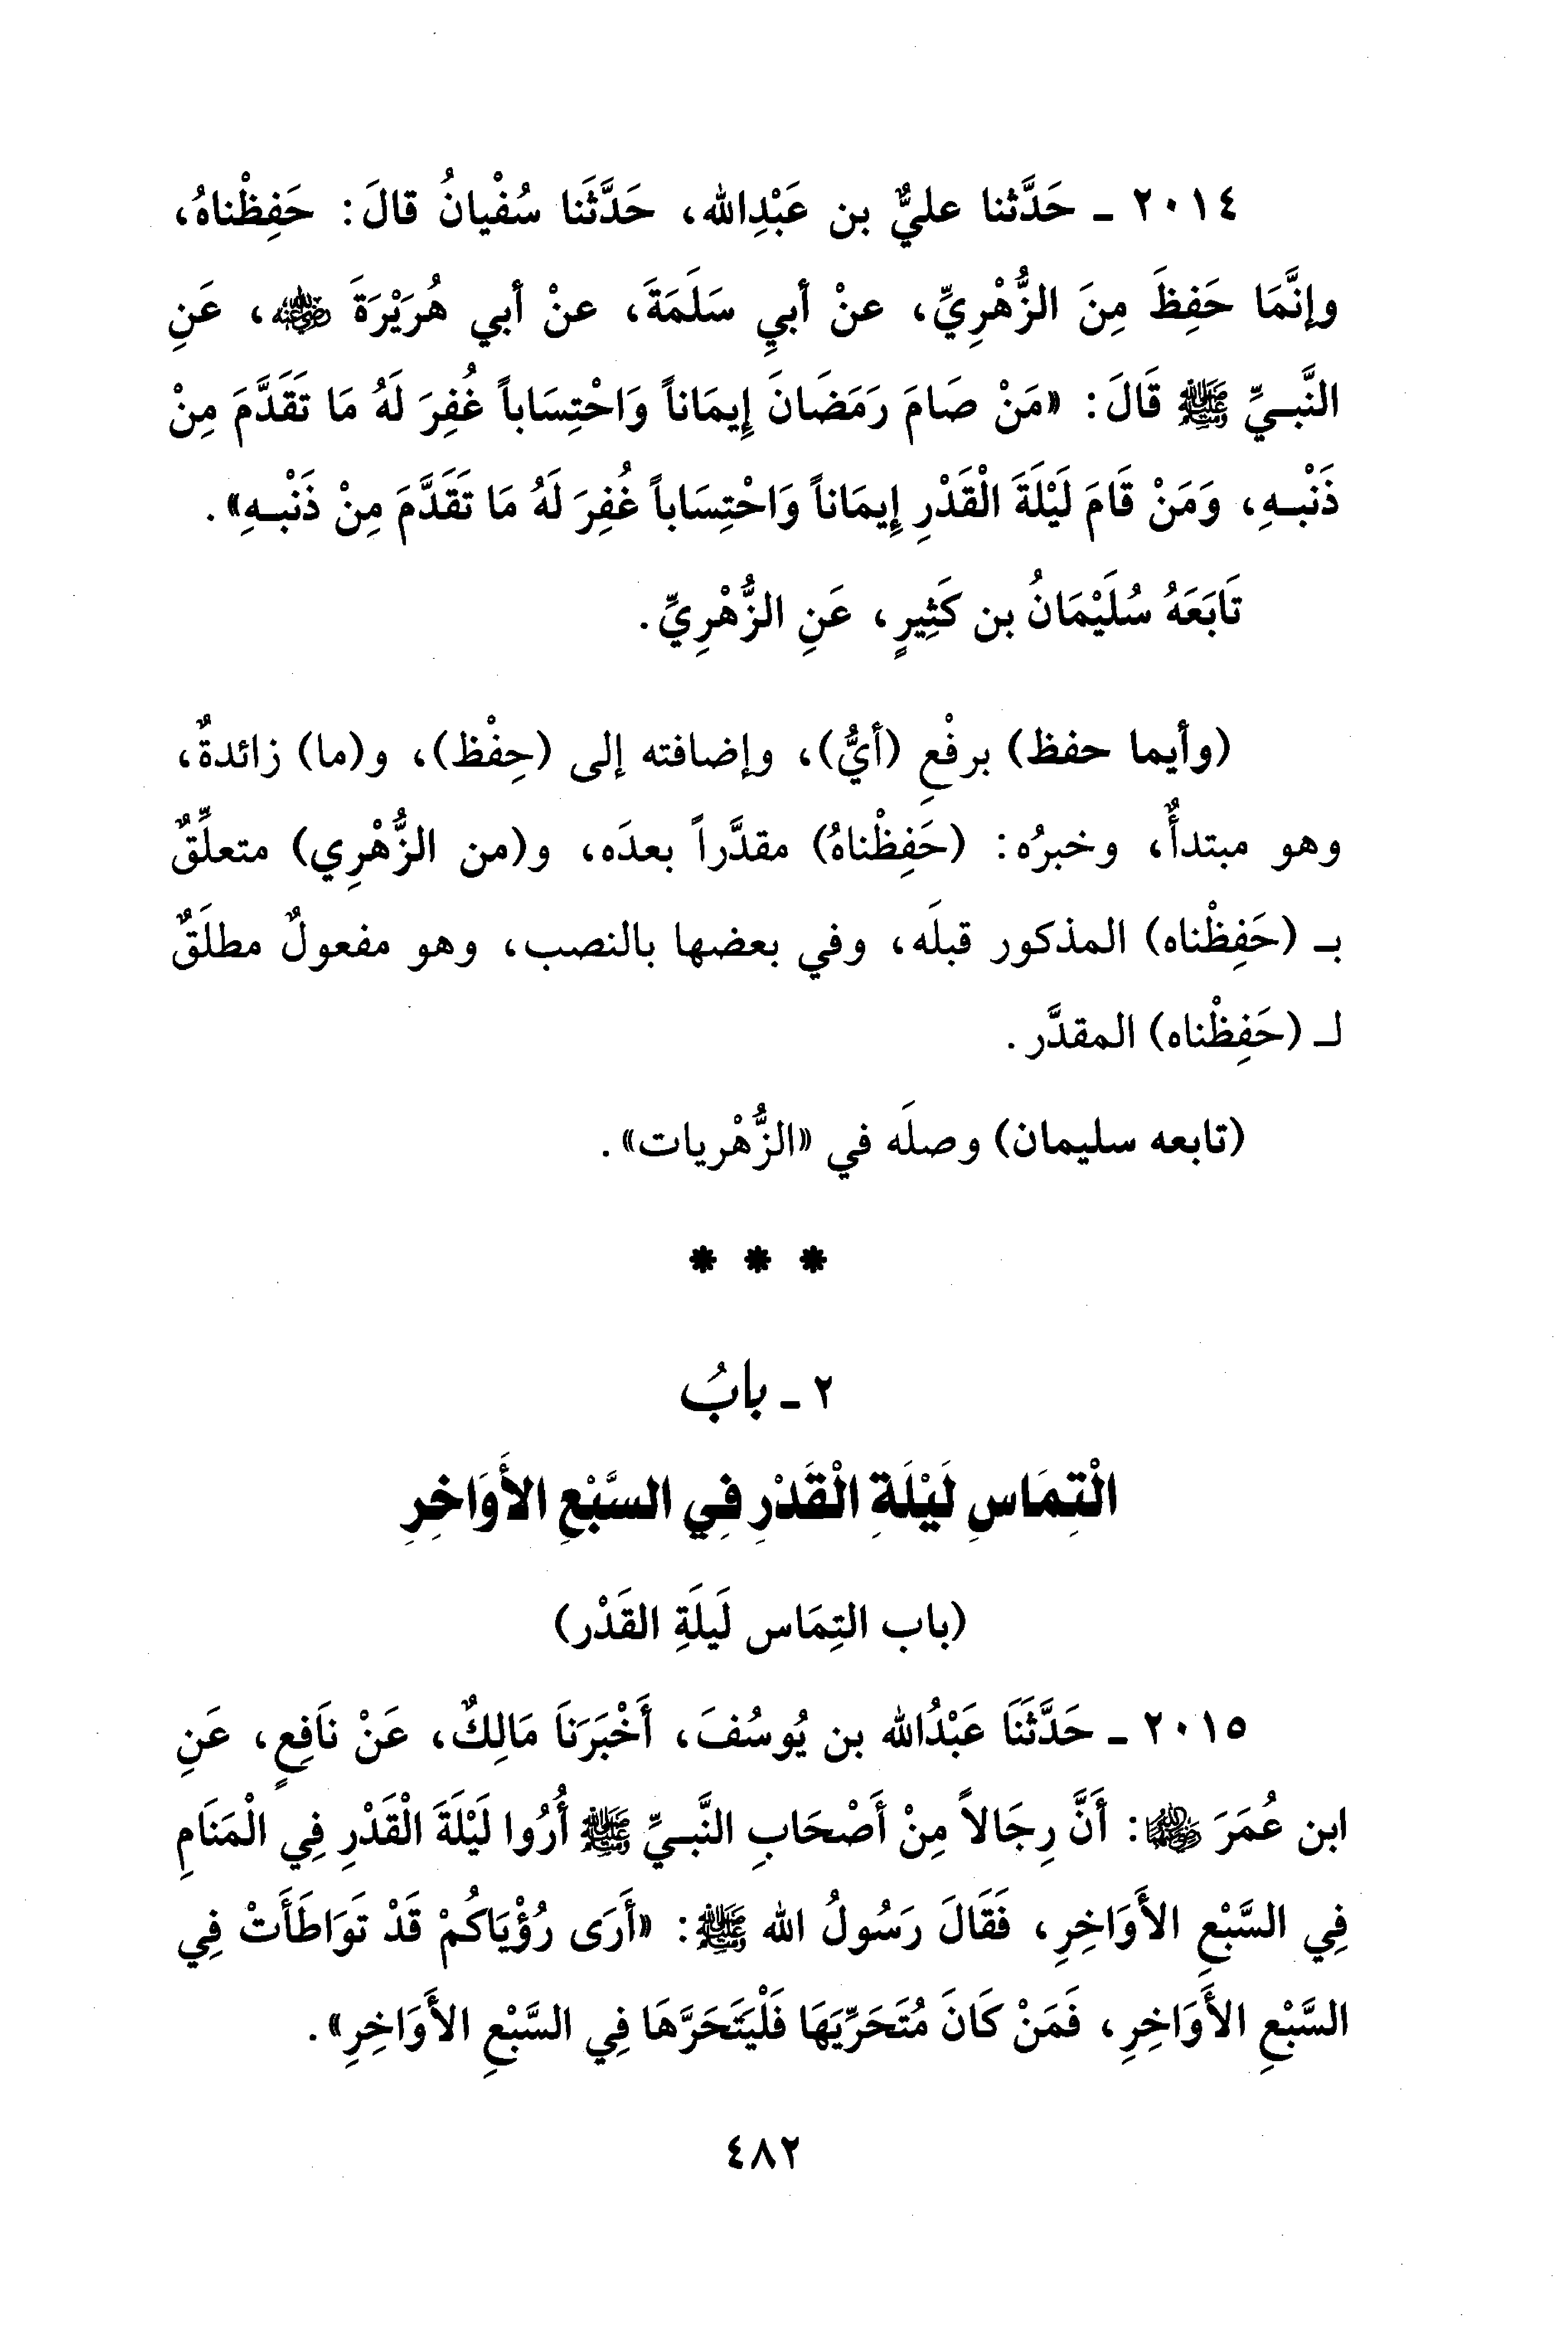 ٢٠١٤ ـ حَدَّثنا عليٌّ بن عَبْدِالله، حَدَّثَنا سُفْيانُ قالَ: حَفِظْناهُ،
وإنَّمَا حَفِظَ مِنَ الزُّهْرِيِّ، عنْ أبيِ سَلَمَةَ، عنْ أبي هُرَيْرَةَ ﵁، عَنِ
النَّبـيِّ ﷺ قَالَ: «مَنْ صَامَ رَمَضَانَ إِيمَاناً وَاحْتِسَاباً غُفِرَ لَهُ مَا تَقَدَّمَ مِنْ
ذَنْبـِهِ، وَمَنْ قَامَ لَيْلَةَ الْقَدْرِ إِيمَاناً وَاحْتِسَاباً غُفِرَ لَهُ مَا تَقَدَّمَ مِنْ ذَنْبـِهِ».
تَابَعَهُ سُلَيْمَانُ بن كَثِيرٍ، عَنِ الزُّهْرِيِّ.
(وأيما حفظ) برفْعِ (أيُّ)، وإضافته إلى (حِفْظ)، و(ما) زائدةٌ،
وهو مبتدأٌ، وخبرُه: (حَفِظْناهُ) مقدَّراً بعدَه، و(من الزُّهْرِي) متعلِّقٌ
بـ (حَفِظْناه) المذكور قبلَه، وفي بعضها بالنصب، وهو مفعولٌ مطلَقٌ
لـ (حَفِظْناه) المقدَّر.
(تابعه سليمان) وصلَه في «الزُّهْريات».
* * *
٢ ـ بابُ
الْتِمَاسِ لَيْلَةِ الْقَدْرِ فِي السَّبْعِ الأَوَاخِرِ
(باب التِمَاس لَيلَةِ القَدْر)
٢٠١٥ ـ حَدَّثَنَا عَبْدُالله بن يُوسُفَ، أَخْبَرَنَا مَالِكٌ، عَنْ نَافِعٍ، عَنِ
ابن عُمَرَ ﵄: أَنَّ رِجَالاً مِنْ أَصْحَابِ النَّبـيِّ ﷺ أُرُوا لَيْلَةَ الْقَدْرِ فِي الْمَنَامِ
فِي السَّبْعِ الأَوَاخِرِ، فَقَالَ رَسُولُ الله ﷺ: «أَرَى رُؤْيَاكُمْ قَدْ تَوَاطَأَتْ فِي
السَّبْعِ الأَوَاخِرِ، فَمَنْ كَانَ مُتَحَرِّيَهَا فَلْيَتَحَرَّهَا فِي السَّبْعِ الأَوَاخِرِ».
٤٨٢